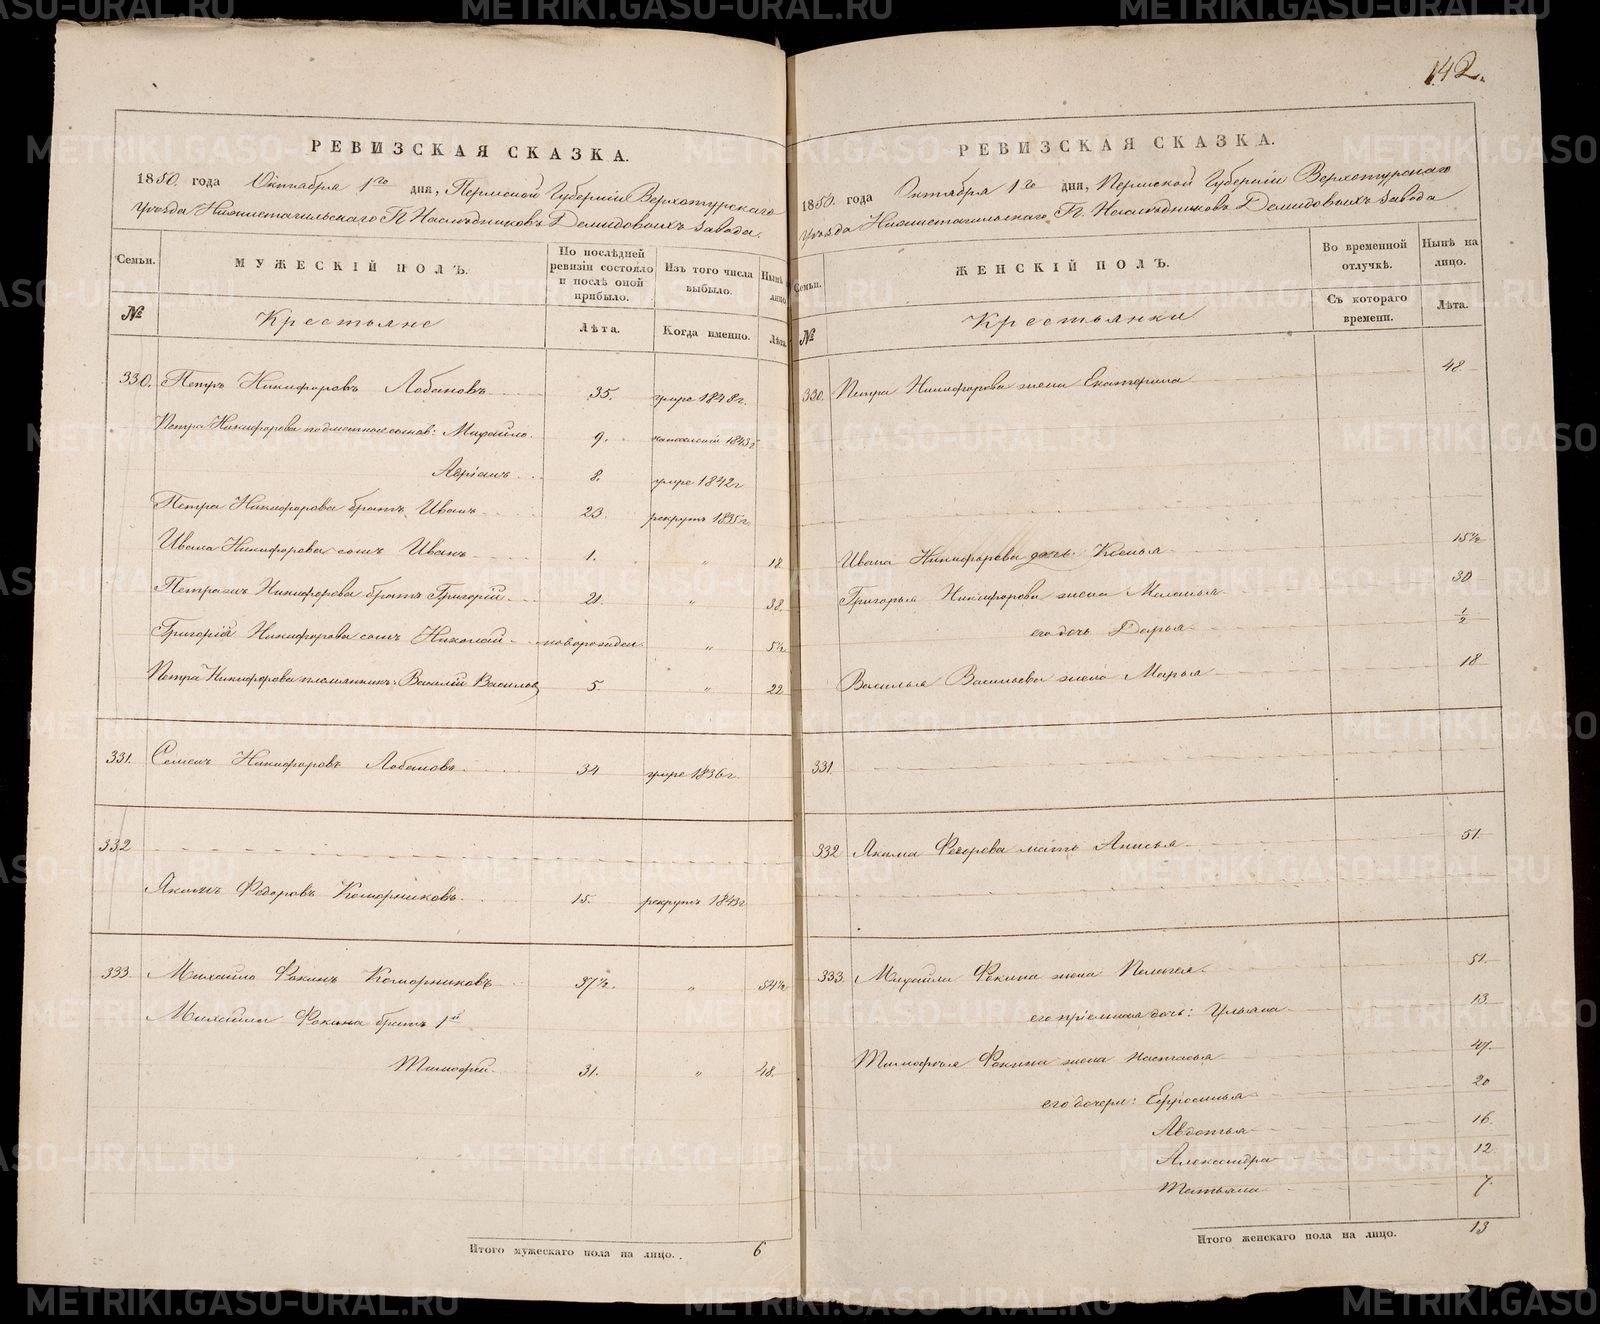 142.
РЕВИЗСКАЯ СКАЗКА.
1850. года Октября 1го дня, Пермской Губерніи Верхотурскаго
Уѣзда Нижнетагильскаго Гг. Наслѣдниковъ Демидовыхъ завода.
Семьи.
МУЖЕСКІЙ ПОЛЪ.
По послѣдней ревизіи состояло и послѣ оной прибыло.
Изъ того числа выбыло.
Нынѣ на лицо
№
Крестьяне
Лѣта.
Когда именно.
Лѣта.
330. Петръ Никифоровъ Лобановъ 35. умре 1848г.
Петра Никифорова сыновья: Михайло. 9. 1843г
8. умре 1842г
Петра Никифорова братъ Иванъ 23. рекрутъ 1835г.
Ивана Никифорова сынъ Иванъ 1. „ 18
Никифорова братъ Григорій 21. „ 38.
Григорія Никифорова сынъ Николай новорожден „ 5½
Петра Никифорова племянникъ: Василій Васильев 5. „ 22
331. Семенъ Никифоровъ Лобановъ 34 умре 1836г.
332
Якимъ Федоровъ Коморниковъ 15. рекрутъ 1843г
333 Михайло Фокинъ Коморниковъ 37½. „ 54½
Михайла Фокина братъ 1й
Тимофей 31. „ 48.
Итого мужескаго пола на лицо. 6
РЕВИЗСКАЯ СКАЗКА.
1850. года Октября 1го дня, Пермской Губерніи Верхотурскаго
Уѣзда Нижнетагильскаго Гг. Наслѣдниковъ Демидовыхъ Завода
Семьи.
ЖЕНСКІЙ ПОЛЪ.
Во временной отлучкѣ.
Нынѣ на лицо.
№
Крестьянки
Съ котораго времени.
Лѣта.
330. Петра Никифорова жена Екатерина 48
Ивана Никифорова дочь Ксенья 15½
Григорья Никифорова жена Меланья 30
его дочь Дарья ½
Василья Васильева жена Марья 18
331.
332 Якима Федорова мать Анисья 51.
333. Михайла Фокина жена Пелагея. 51.
его пріемная дочь: Ульяна 13.
Тимофея Фокина жена Настасья 47.
его дочери: Ефросинья 20
Авдотья 16.
Александра 12
Татьяна 7.
Итого женскаго пола на лицо. 13
METRIKI.GASO-URAL.RU